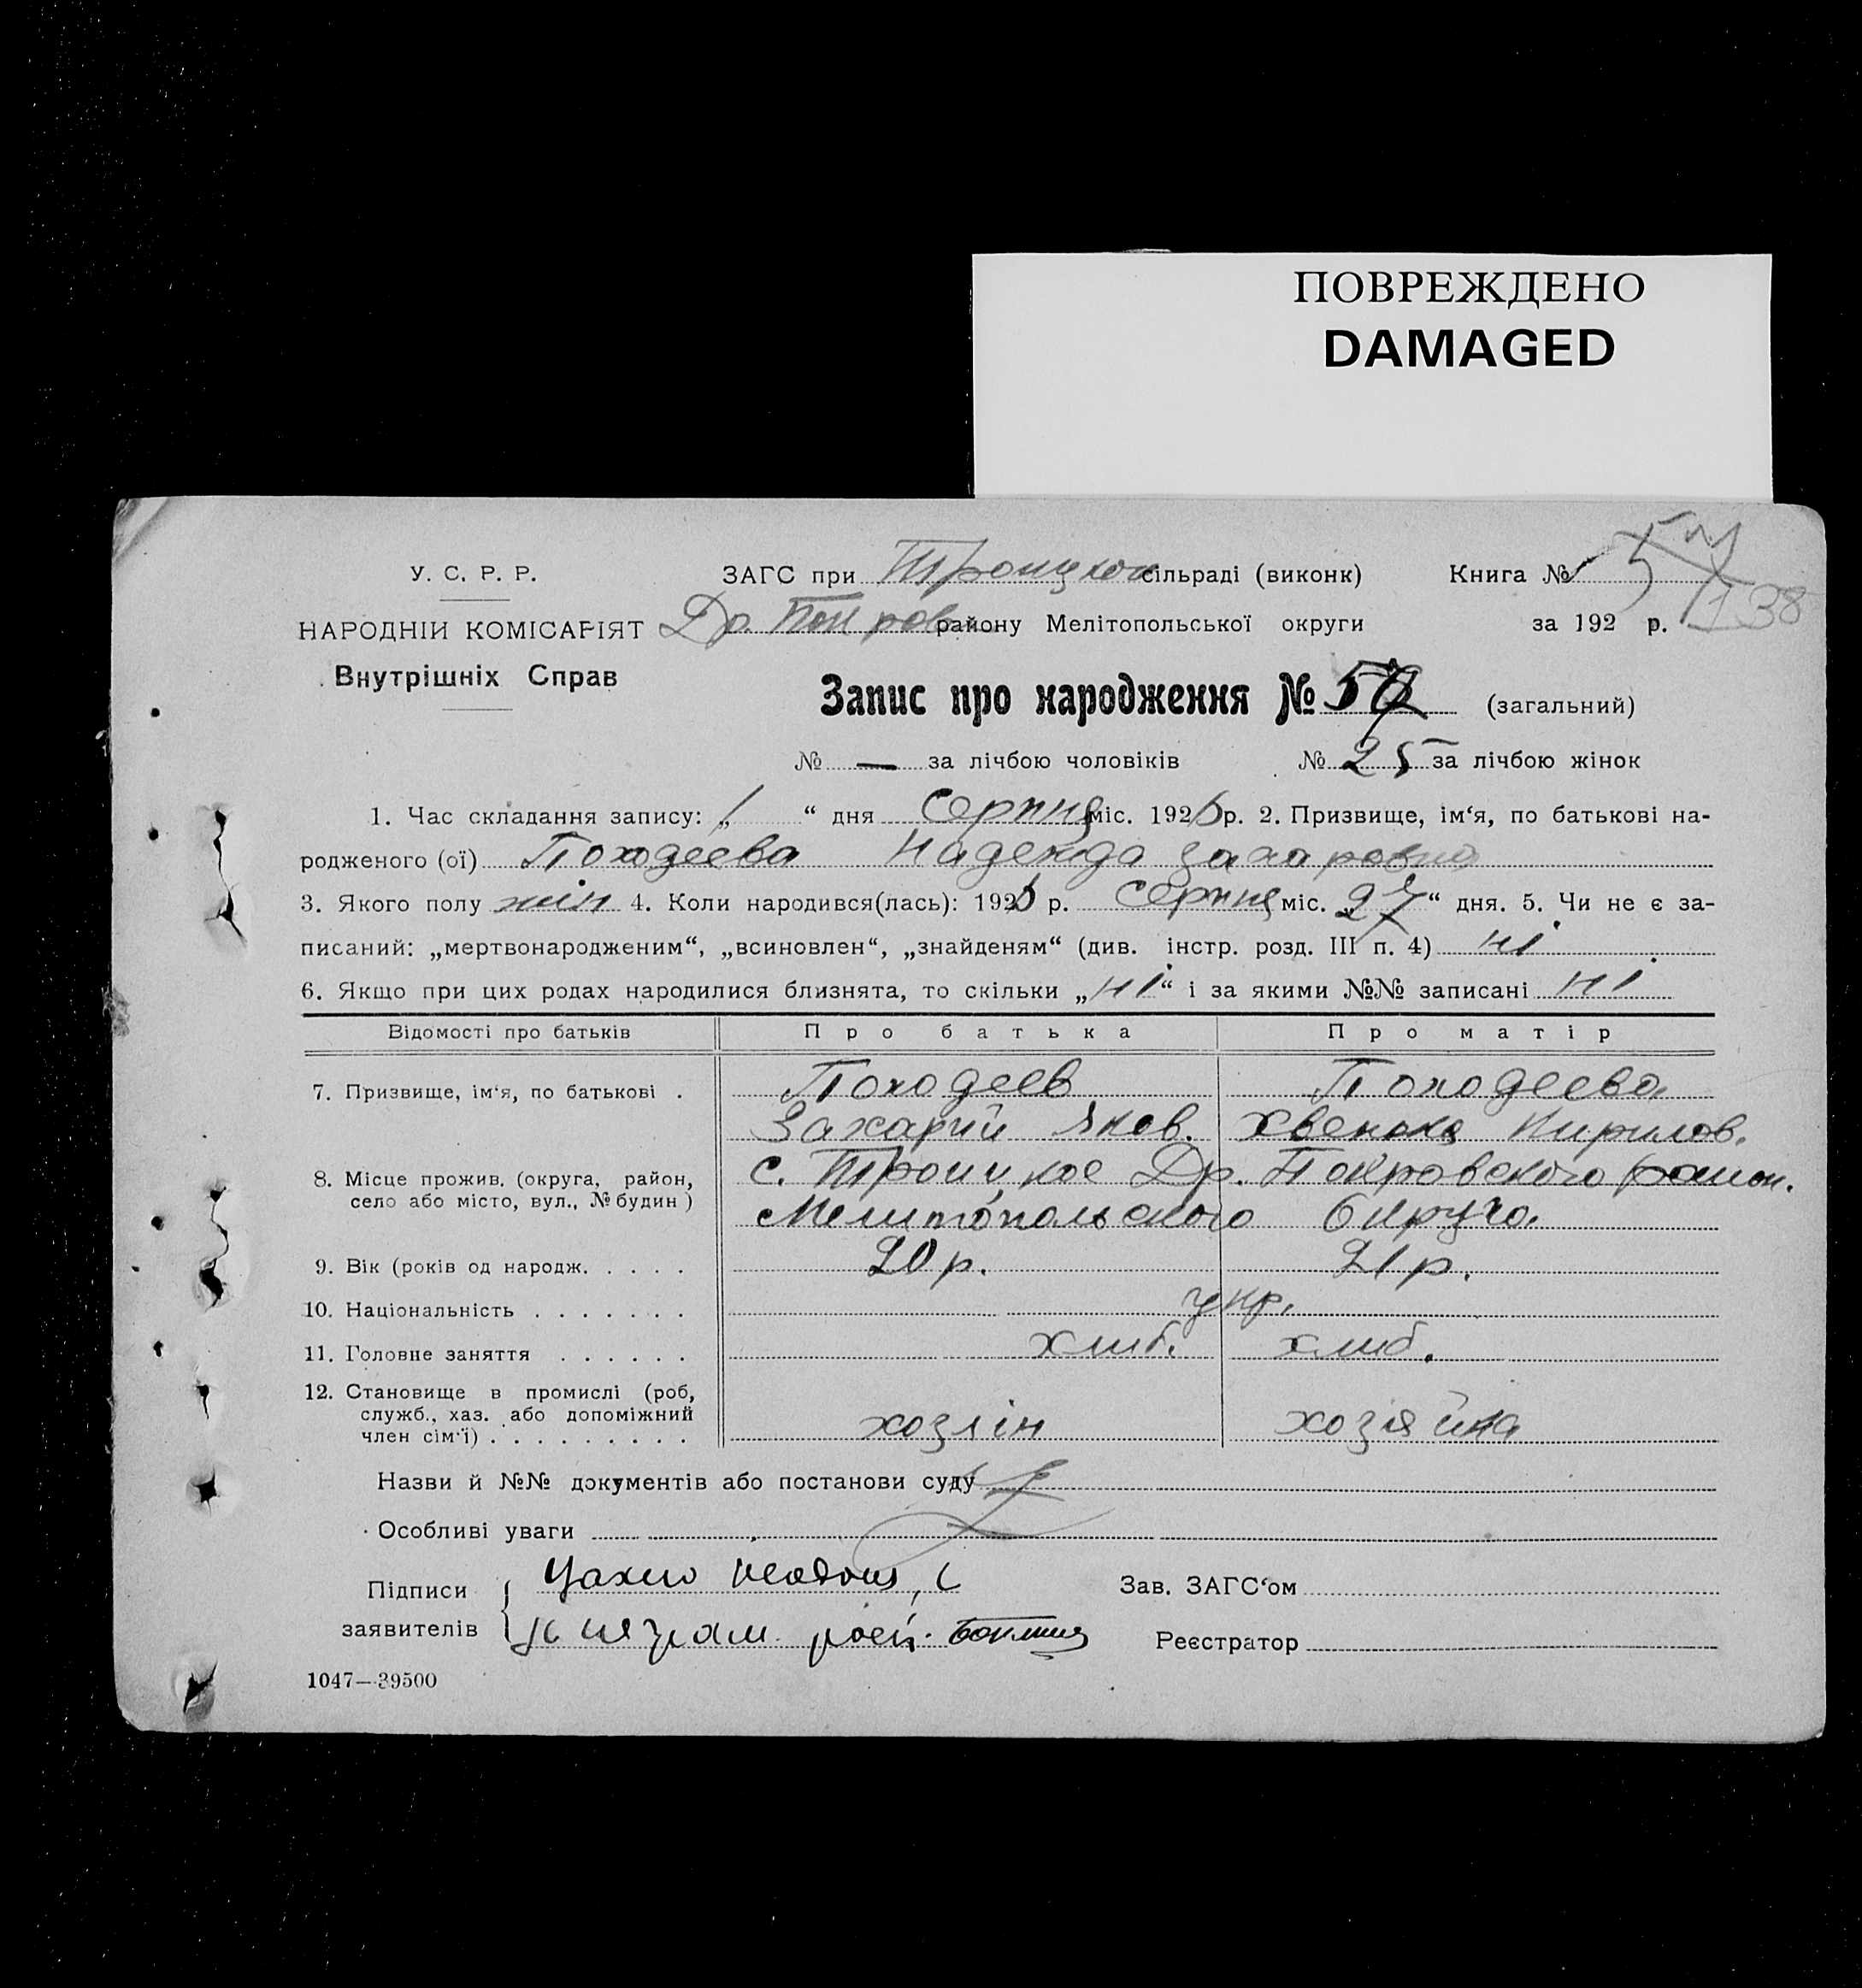 ПОВРЕЖДЕНО
DAMAGED
У. С. Р. Р.
ЗАГС при Троицкой сільраді (виконк)
Книга № 5
138
НАРОДНІЙ КОМІСАРІЯТ
Др. Покров району Мелітопольської округи
за 192 р.
Внутрішніх Справ
Запис про народження № (загальний)
№ — за лічбою чоловіків № 25 за лічбою жінок
1. Час складання запису: „1 “ дня Серпня міс. 192 р. 2. Призвище, ім‘я, по батькові на-
родженого (ої) Походеева Надежда Захаровна
3. Якого полу жін 4. Коли народився(лась): 192 р. серпня міс. „27“ дня. 5. Чи не є за-
писаний: „мертвонародженим“, „всиновлен“, „знайденям“ (див. інстр. розд. III п. 4) ні
6. Якщо при цих родах народилися близнята, то скільки „ні“ і за якими №№ записані ні
Відомості про батьків Про батька Про матір
7. Призвище, ім‘я, по батькові . Походеев Походеева
Захарий Яков. Кирилов.
8. Місце прожив. (округа, район, с. Троицкое Др. Покровского район.
село або місто, вул., № будин )
Мелитопольского Округа
9. Вік (років од народж. . . . . 20 р. 21 р.
10. Національність . . . . . . . укр.
11. Головне заняття . . . . . . хлиб. хлиб.
12. Становище в промислі (роб,
служб., хаз. або допоміжний
член сім‘ї) . . . . . . . . . хозяін хозяйка
Назви й №№ документів або постанови суду
Особливі уваги
Підписи
Зав. ЗАГС‘ом
заявителів
Реєстратор
1047—39500